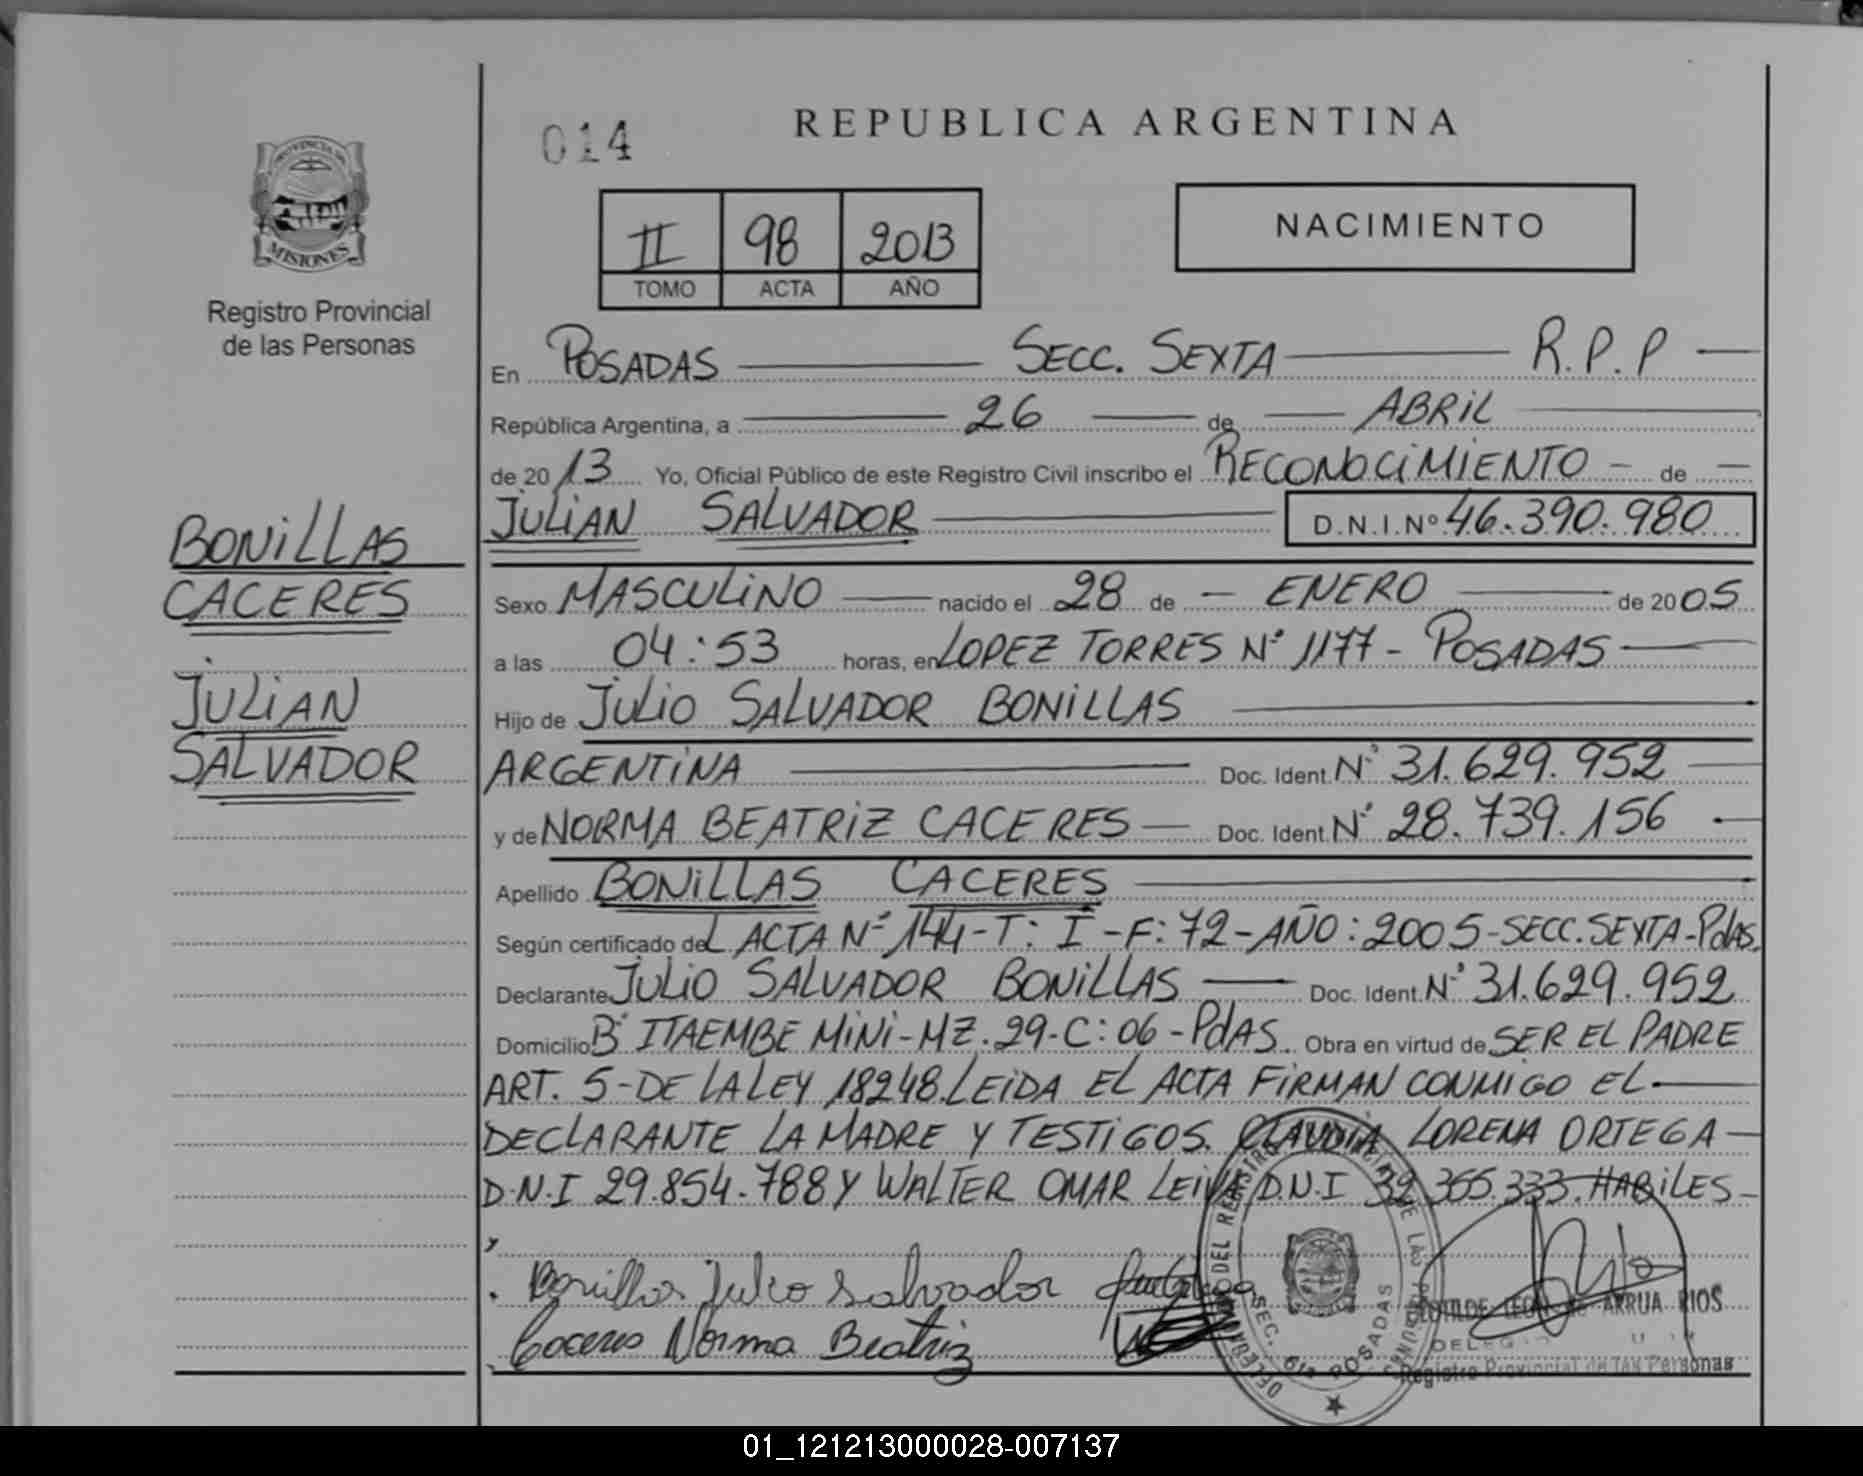 REPUBLICA ARGENTINA
014
PROVINCIA DE
MISIONES
Registro Provincial
de las Personas
II 98 2013
TOMO ACTA AÑO
NACIMIENTO
En POSADAS SECC. SEXTA R.P.P
República Argentina, a 26 de ABRIL
de 2013 Yo, Oficial Público de este Registro Civil inscribo el RECONOCIMIENTO de
JULIAN SALVADOR D.N.I.Nº 46.390.980
BONILLAS
CACERES
JULIAN
SALVADOR
Sexo MASCULINO nacido el 28 de ENERO de 2005
a las 04:53 horas, en LOPEZ TORRES Nº 1177 - POSADAS
Hijo de JULIO SALVADOR BONILLAS
ARGENTINA Doc. Ident. Nº 31.629.952
y de NORMA BEATRIZ CACERES Doc. Ident. Nº 28.739.156
Apellido BONILLAS CACERES
Según certificado del ACTA Nº 144 - T: I - F: 72 - AÑO: 2005 - SECC. SEXTA - Pdas.
Declarante JULIO SALVADOR BONILLAS Doc. Ident. Nº 31.629.952
Domicilio Bº ITAEMBE MINI - MZ. 29 - C: 06 - PdAS. Obra en virtud de SER EL PADRE
ART. 5 - DE LA LEY 18248. LEIDA EL ACTA FIRMAN CONMIGO EL
DECLARANTE LA MADRE Y TESTIGOS. CLAUDIA LORENA ORTEGA
D.N.I 29.854.788 Y WALTER OMAR LEIVA D.N.I 32.365.333. HABILES
Bonillas Julio Salvador
Caceres Norma Beatriz
SEC. 6ta POSADAS
ARRUA RIOS
Registro Provincial de las Personas
01_121213000028-007137